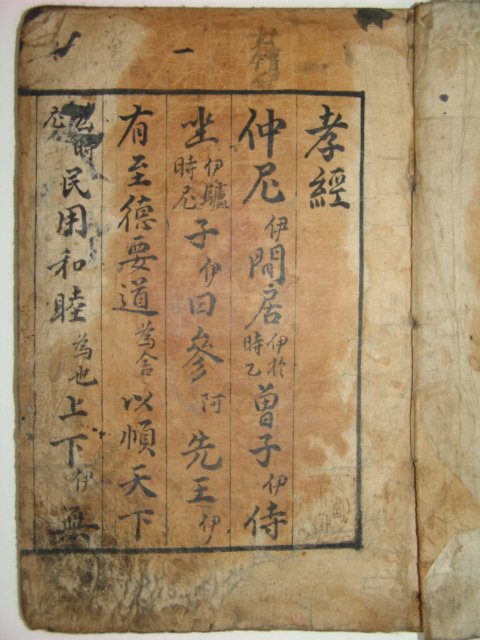 一
孝經
仲尼伊閒居伊於時乙曽子伊侍
坐伊驢時尼子伊曰參阿先王伊
有至德要道為舍以順天下
云時尼民用和睦為也上下伊無